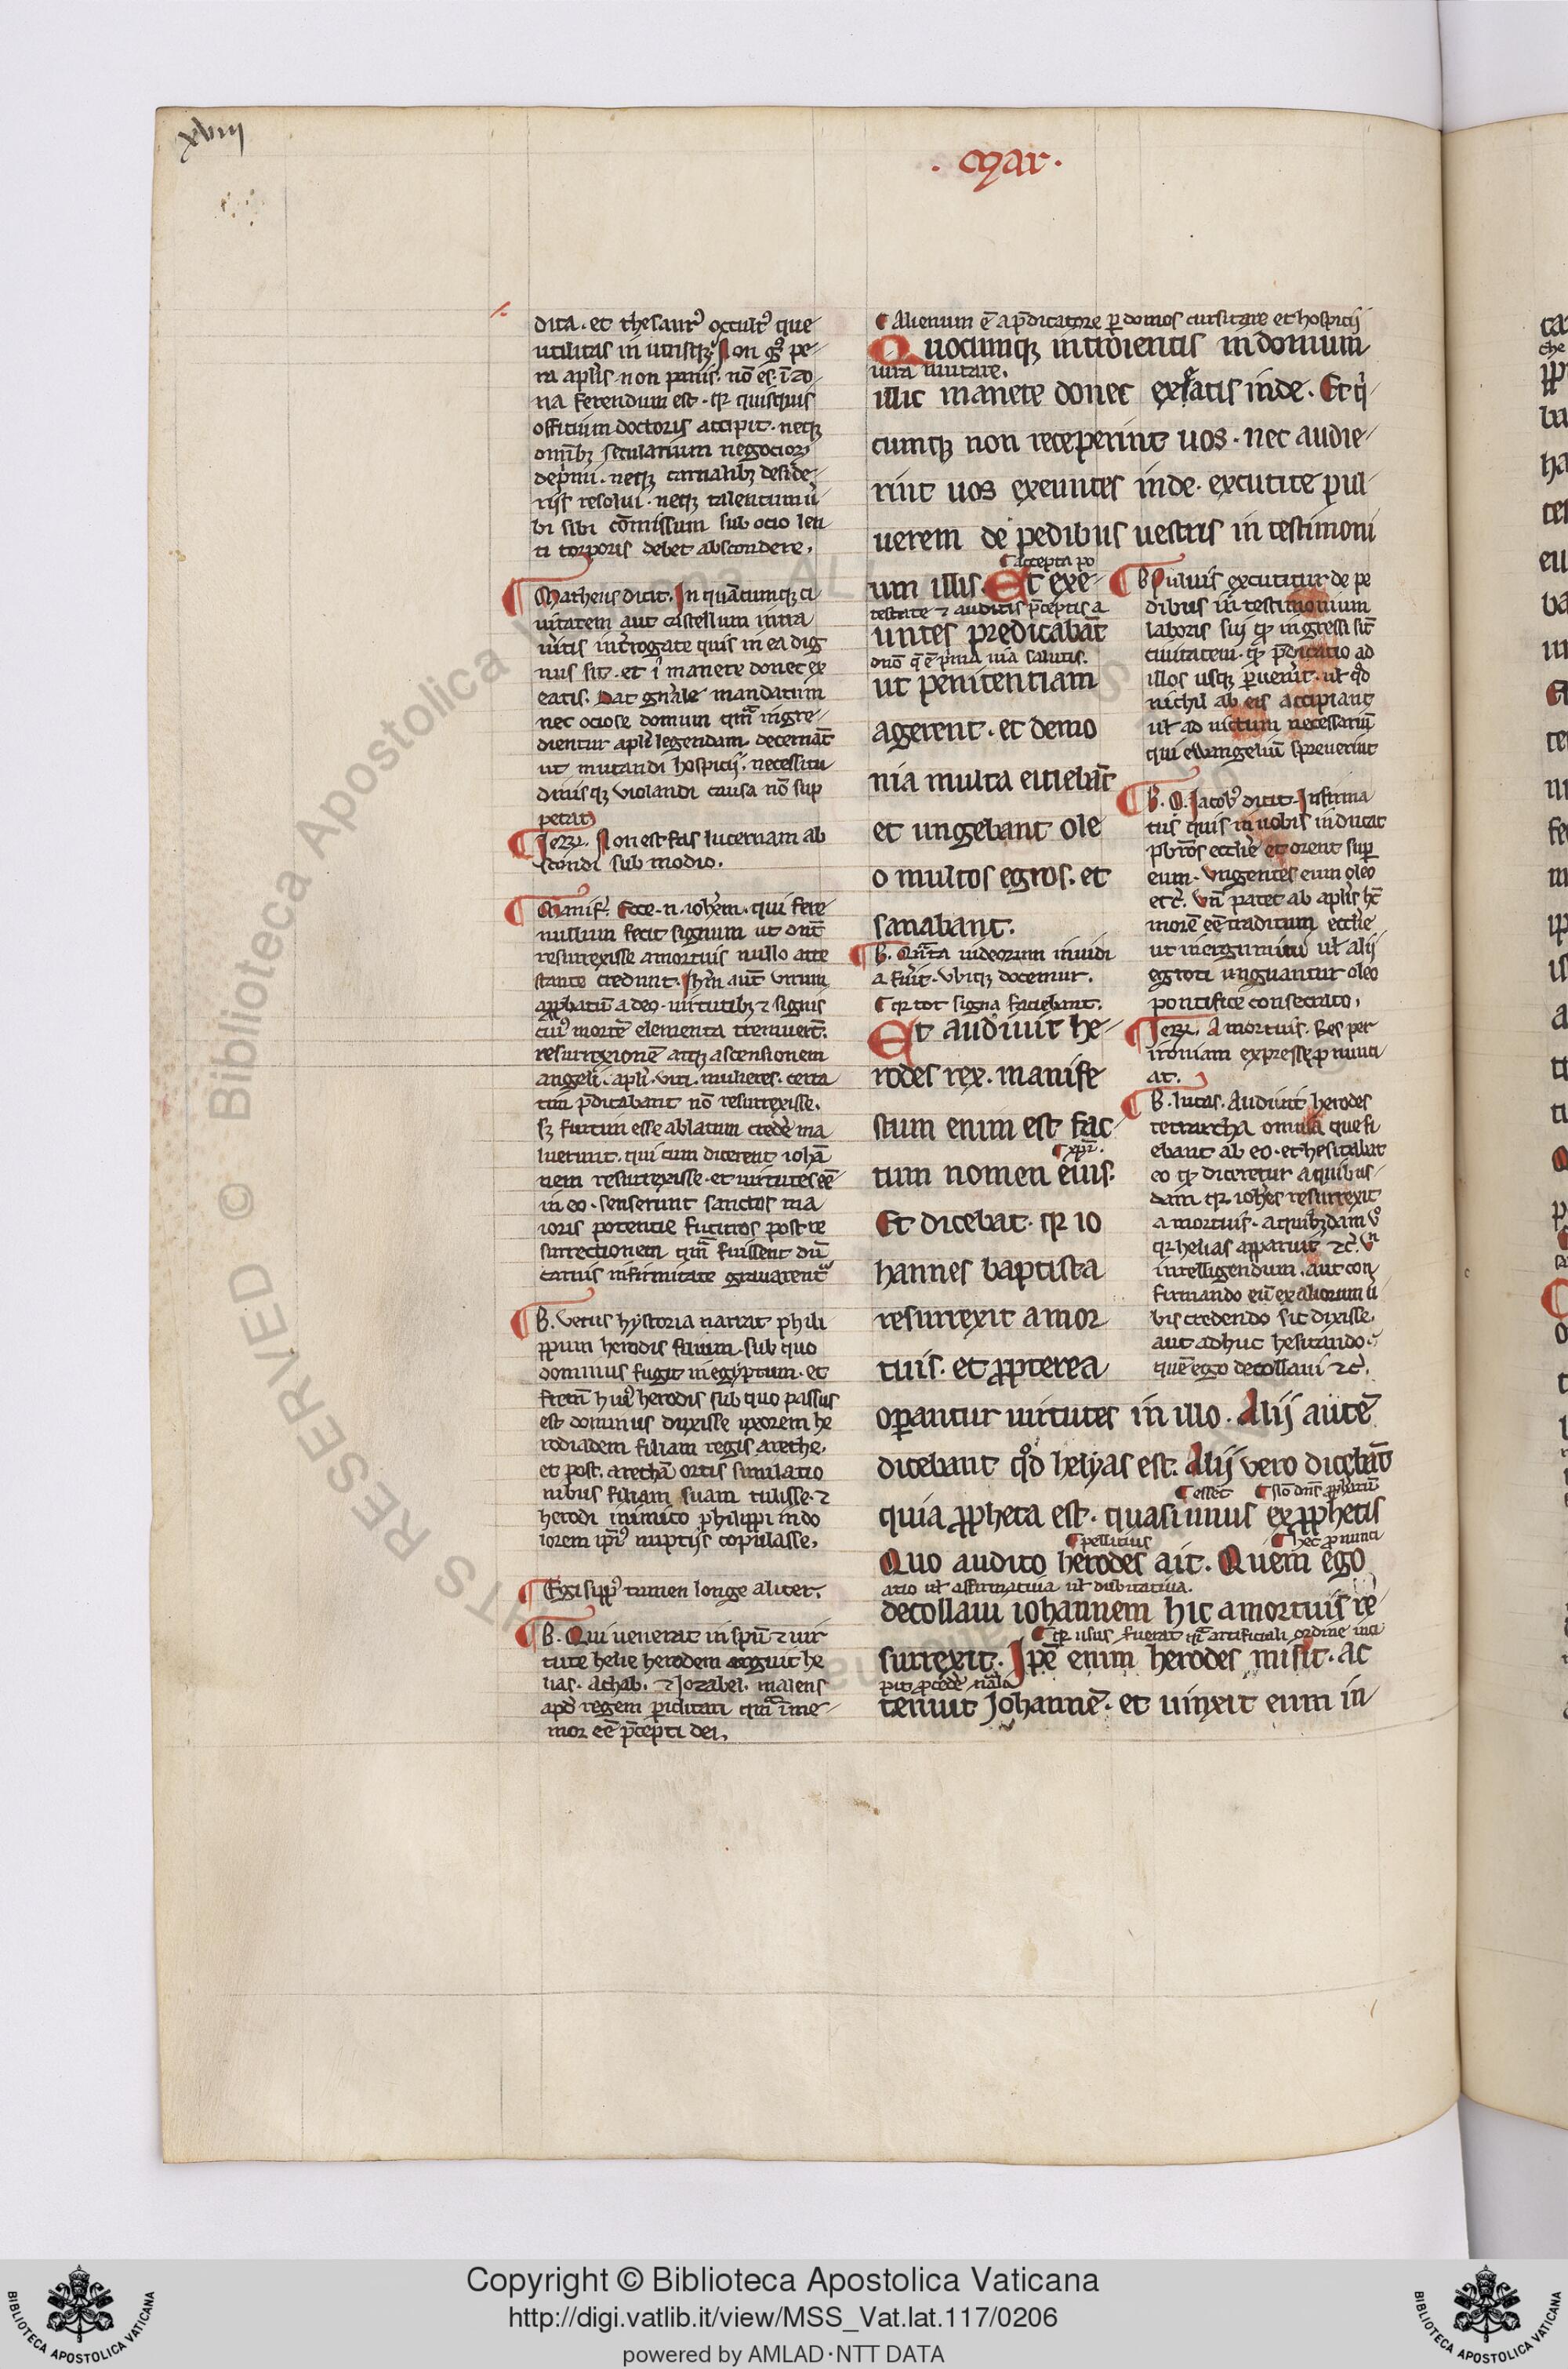 xviij
. Mar .
dita . et thesaur⁹ occult⁹ que
utilitas in utrisq; Non g° pe-
ra aplis non panis . nō es . ī zo-
na ferendum est . qr quisquis
officium doctoris accipit . neq;
omībz secularium negocior
deprimi . neq; carnalibz deside-
rijs resolui . neq; talentum ū
bi sibi cōmissum sub ocio len
ti torporis debet abscondere .
Matheus dicit . In quācumq; ci
uitatem aut castellum intra
ueritis int̄rogate quis in ea dig
nus sit . et ī manete donec ex
eatis . Dat gnāle mandatum
nec ociose domum qm̄ ingre-
dientur apli legendam decernāt
ut mutandi hospicij . necessitu
dinisq; violandi causa nō sup
petat
Jero . Non est fas lucernam ab
scondi sub modio .
Manif . Ecce . n . iohem . qui fere
nullum fecit signum ut oms
resurrexisse a mortuis nullo atte
stante credunt . Ihm aut virum
approbatū a deo . uirtutibz ⁊ signis
cui⁹ mortē elementa tremuerūt .
resurrexionē atq; ascensionem
angeli . apli . viri . mulieres . certa
tim p̄dicabant nō resurrexisse .
sz furtim esse ablatum credē ma
luerunt . qui cum dicerent iohā
nem resurrexisse . et uirtutes eē
in eo . senserunt sanctos ma
ioris potentie futuros post re
surrectionem qm̄ fuissent dū
carnis infirmitate grauarent
B . Vetus hystoria narrat phili
ppum herodis filium . sub quo
dominus fugit in egyptum . et
fratrē hui⁹ herodis sub quo passus
est dominus duxisse uxorem he
rodiadem filiam regis arethe .
et post . arethā ortis simulatio
nibus filiam suam tulisse . ⁊
herodi inimico philippi in do
lorem ipi⁹ nuptijs copulasse .
Egisipp⁹ tamen longe aliter .
B . Qui uenerat in spū ⁊ uir
tute helie herodem arguit he
lias . Achab . ⁊ Jezabel . malens
apd regem periclitari qm̄ īme-
mor eē p̄cepti dei .
Alienum ē a p̄dicatore p domos cursitare et hospicij
Quocumq; introieritis in domum
iura mutare .
illic manete donec exeatis inde . Et qi
cumq; non receperint uos . nec audie-
rint uos exeuntes inde . excutite pul
uerem de pedibus uestris in testimoni
accepta po
um illis . Et exe-
testate ⁊ auditis p̄ceptis a
untes predicabāt
dno q̄ ē prima uia salutis .
ut penitentiam
agerent . et demo
nia multa eiciebāt
et ungebant ole
o multos egros . et
sanabant .
B . Qnta iudeorum inuidi
a fuit . vbiq; docemur .
qr tot signa faciebant .
Et audiuit he-
rodes rex . manife
stum enim est fac-
xpi .
tum nomen eius .
Et dicebat . qr io
hannes baptista
resurrexit a mor
tuis . et ppterea
operantur uirtutes in illo . Alij autē
dicebant qd helyas est . Alij vero dicebāt
esset
quia ppheta est . quasi unus ex pphetis
pellicius
hec pnunci
Quo audito herodes ait . Quem ego
atio ul affirmatiua ul dubitatiua .
decollaui iohannem hic a mortuis re-
qr usus fuerat qi artificiali ordine inci
surrexit . Ipē enim herodes misit . ac
pit pcedē
tenuit Johannē . et uinxit eum in
B Puluis excutitur de pe
dibus in testimonium
laboris sui qd ingressi sūt
ciuitatem . qd p̄dicatio ad
illos usq; puenit . ul qd
nichil ab eis accipiant
ul ad uictum necessariū
qui ewangeliū spreuerint
B . Q . Jacob⁹ dicit . Infirma
tus quis in uobis inducat
pbros ecclie et orent sup
eum . ungentes eum oleo
etc . Vn patet ab aplis hc
morē eē traditum ecclie
ut inergumini ul alij
egroti unguantur oleo
pontifice consecrato .
Jero . A mortuis . Res per
ironiam expresse pnunci
at .
B . lucas . Audiuit herodes
tetrarcha omnia que fi
ebant ab eo . et hesitabat
eo qd diceretur a quibus-
dam qr iohes resurrexit
a mortuis . a quibzdam v°
qr helias apparuit ⁊c . Vn
intelligendum . aut con
firmando eū ex aliorum u
bis credendo sic dixisse .
aut adhuc hesitando .
quē ego decollaui ⁊c .
Copyright © Biblioteca Apostolica Vaticana
http://digi.vatlib.it/view/MSS_Vat.lat.117/0206
powered by AMLAD·NTT DATA
BIBLIOTECA APOSTOLICA VATICANA
BIBLIOTECA APOSTOLICA VATICANA